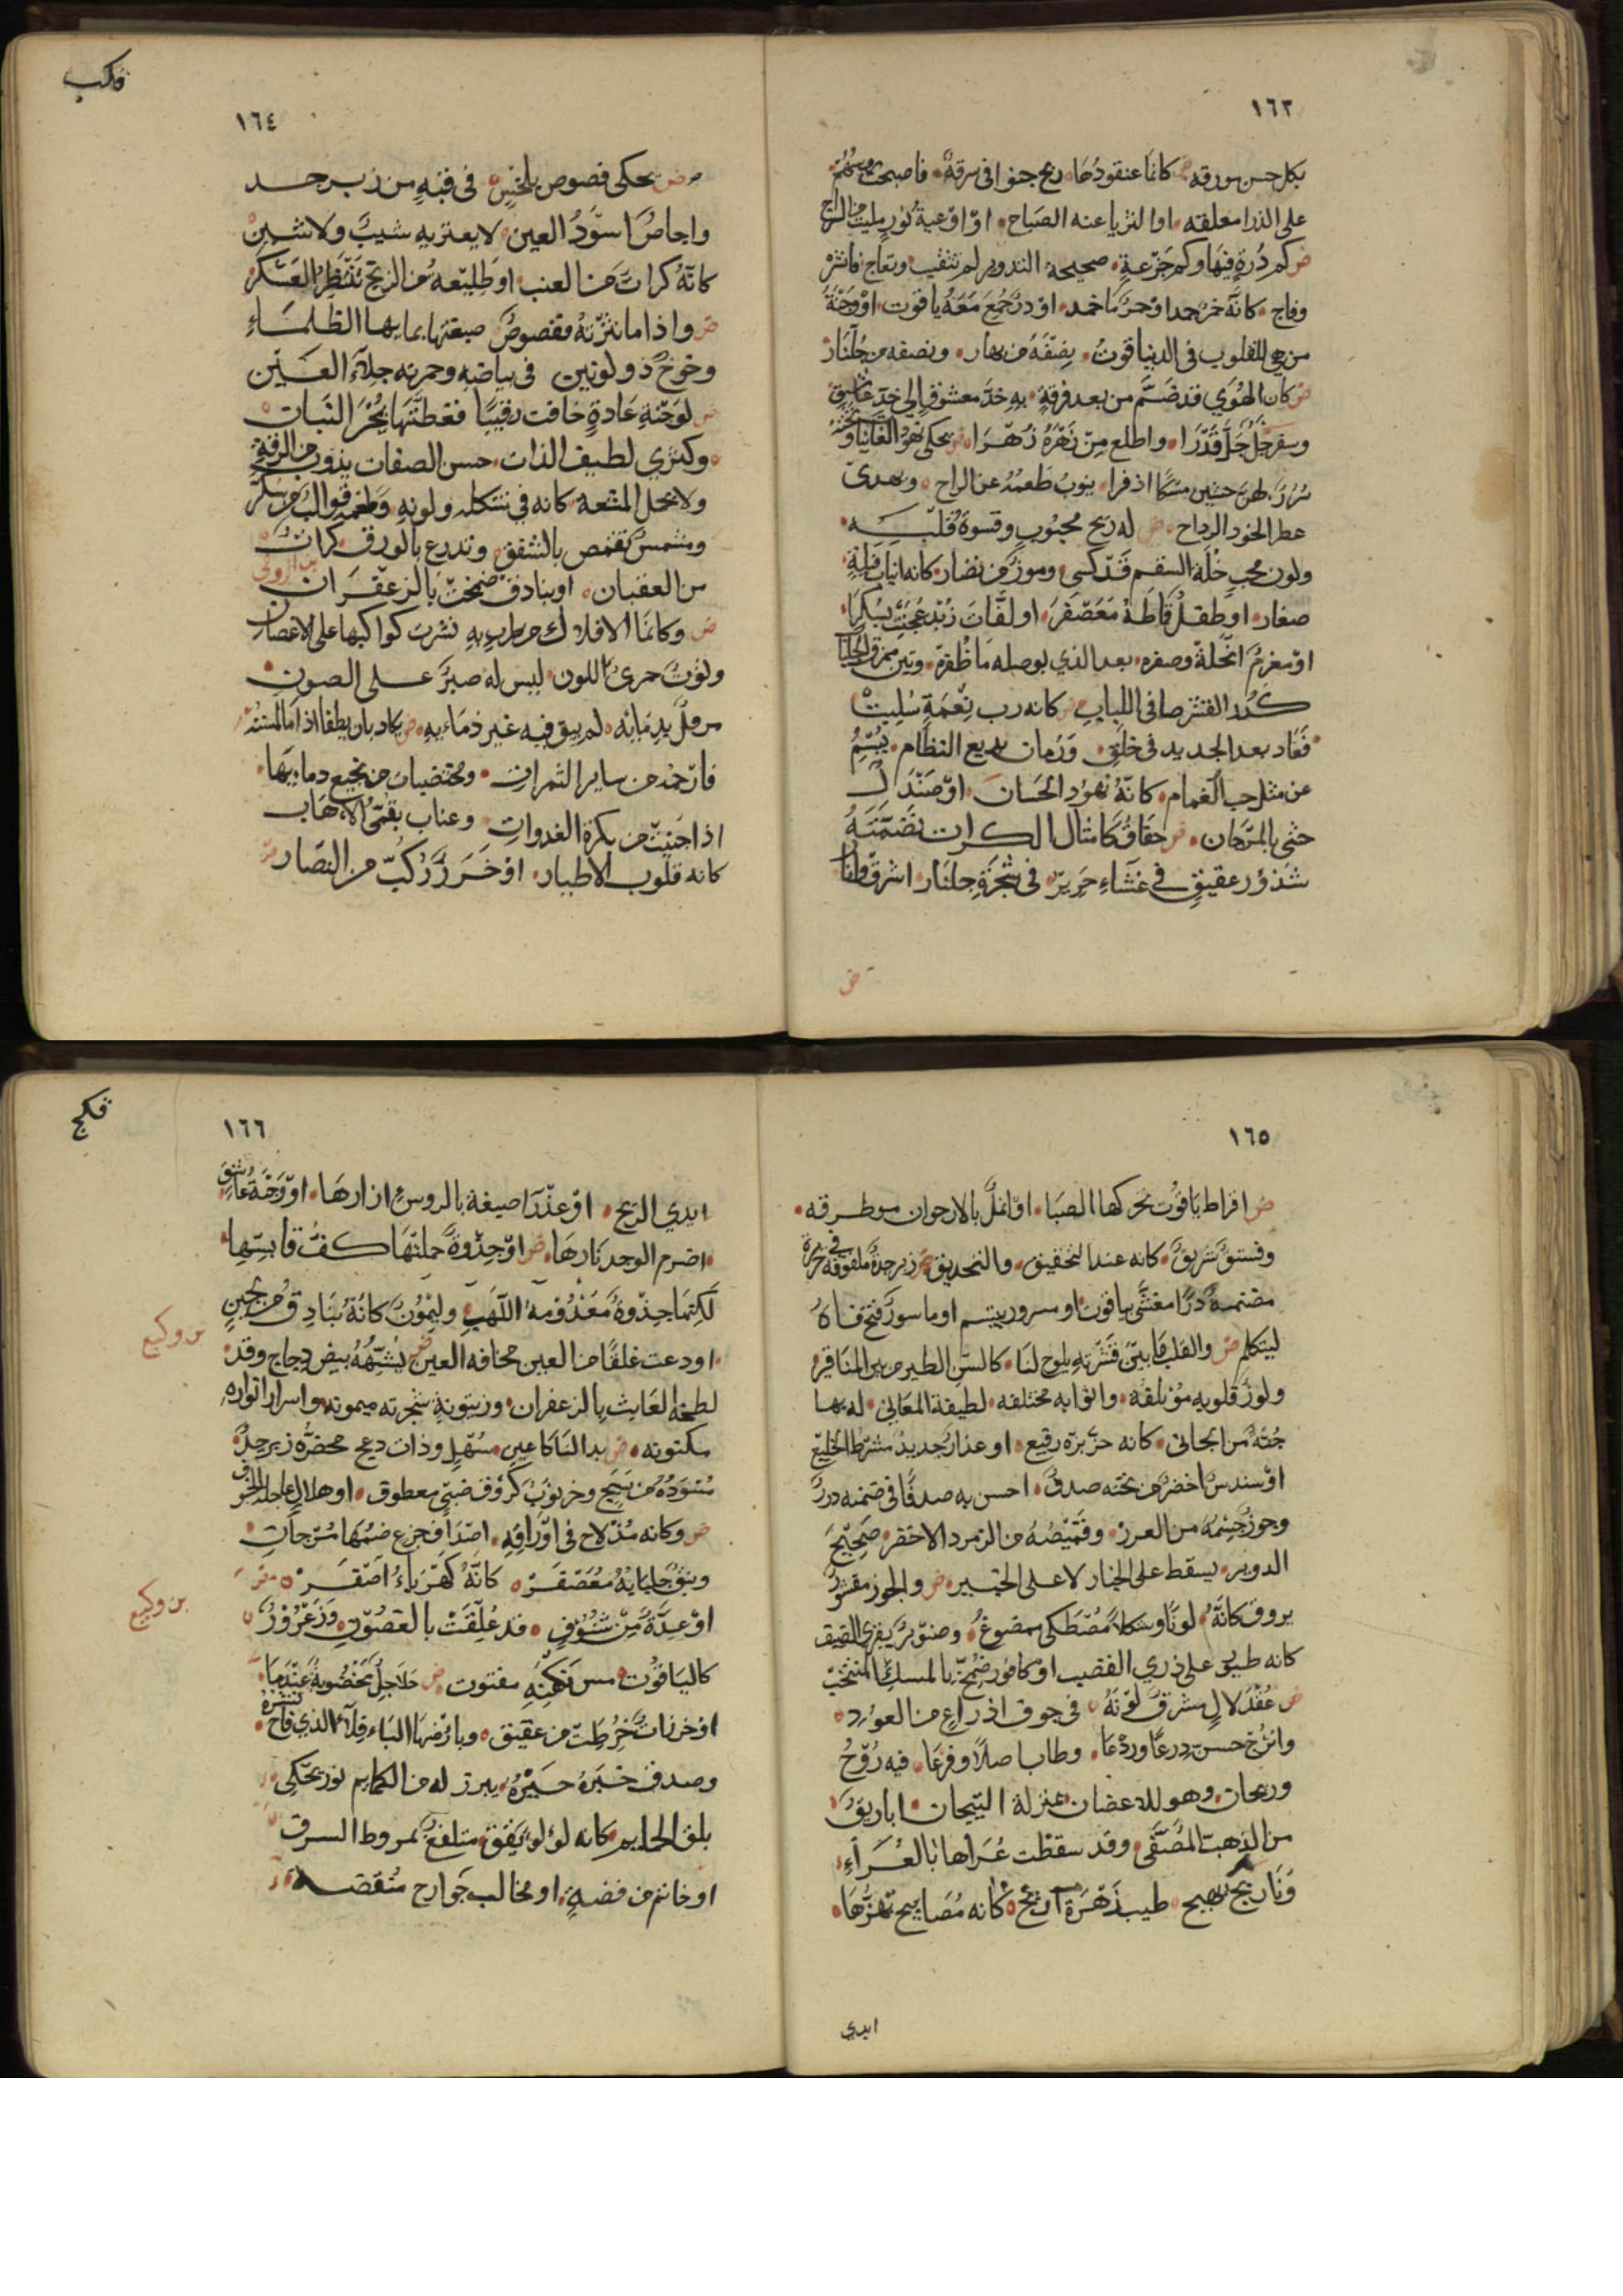 ١٦٣
بكل حسن مورقه كانما عنقودها زنج جنوا في سرقة فاصبحت
على الذرا معلقه او الثريا عنه الصباح او اوعية نور مليت من الراح
ض كم درة فيها وكم جزعة صحيحة التدوير لم تثقب وتفاح فانثره
وفاح كانه خمر جمد او جمر ما خمد او در جمع معه ياقوت او وجنة
من هي للقلوب في الدنيا قوت نصفه من بهار ونصفه من جلنار
ض كان الهوي قد ضم من بعد فرقة به خد معشوق الى خد عاشق
وسفرجل جل قدرا واطلع من زهره زهرا ض يحكى نهود الغانيات وتحته
سرر لهن حشين مسكا اذفرا ينوب طعمه عن الراح ويهدى
عطر الخود الرداح ض له ريح محبوب وقسوة قلبه
ولون محب حلة السقم قد كسى وموز من نضار كانه انياب فيلة
صغار او طفل قاطه معصفر او لفات زبد عجنت بسكر
او مغرم انحله وصفره بعد الذي بوصله ما ظفره وتين ممزق الجلباب
كدر الفتر صافى اللباب ض كانه رب نعمة سلبت
فعاد بعد الجديد في خلق ورمان بديع النظام يبسم
عن مثل حب الغمام كانه نهود الحسان او صندل
حشى بالمرجان ض حقاق كامثال الكرات تضمنه
شذور عقيق في غشاء حرير في شجرة جلنار اشرق وانار
ض
فكب
١٦٤
ض يحكى فصوص بلخش في قبة من زبرجد
واجاص اسود العين لا يعتريه شيب ولا شين
كانه كرات من العنب او طليعه من الزنج تنتظر العسكر
ض واذا ما نثرته ففصوص صبغتها بمايها الظلماء
وخوخ ذو لونين في بياضه وحمرته جلاء العين
ض لوجنة غادة خافت رقيبا فغطتها بخز النبات
وكمثري لطيف الذات حسن الصفات يذوب من الرقة
ولا يحل المتعة كانه في شكله ولونه وطعمه قوالب من سكر
ومشمش تقمص بالشفق وتدرع بالورق كرات
من العقيان او بنادق ضمخت بالزعفران بن الرومى
ض وكانما الافلاك من طربه به نثرت كواكبها على الاغصان
وتوت حمري اللون ليس له صبر على الصون
من قل يد نباته لم يبق فيه غير ذماءه ض كاد بان يطفا اذا ما لمسته
فارحمته من ساير الثمرات ومختضبات من نجيع دمايها
اذا جنيت من بكرة الغدوات وعناب بقمى الاهاب
كانه قلوب الاطيار او خرز ركب من النضار
١٦٥
ض اقراط ياقوت تحركها الصبا او انمل بالارجوان مطرقه
وفستق شريق كانه عند التحقيق والتحديق ض زبرجدة ملفوفة في حريرة
مضمنة درا مغشى بياقوت او مسرور يبتسم او ماسور فتح فاه
ليتكلم ض والقلب ما بين قشرته يلوح لنا كالسن الطير من بين المناقير
ولوز قلوبه مؤتلفة واثوابه مختلفه لطيفة المعاني له بها
جنة من الجانى كانه حز بره رقيع او عذار جديد مشرط الخليع
او سندس اخضر من تحته صدف احسن به صدفا في ضمنه درر
وجوز جسمه من العرر وقميصه من الزمرد الاخضر صحيح
الدوير يسقط على الخيار لا على الخبير ض والجوز مقشور
يروق كانه لونا وشكلا مصطكى ممضوغ وصنوبر يغري القيق
كانه طير على ذري القضيب او كافور ضمخ بالمسك المنتخب
ض عقد لال مشرق لونه في جوف اذراع من العود
واترج حسن درعا وردعا وطاب اصلا وفرعا فيه روح
وريحان وهو للاغصان بمنزلة التيجان اباريق
من الذهب المصفى وقد سقطت عراها بالعراء
ونارنج بهيج طيب زهره اريج كانه مصابيح تهزها
ايدي
فكج
١٦٦
ايدي الريح او عذرا صبغة بالورس ازارها او وجنة عاشق
اضرم الوجد نارها ض او جذوة حملتها كف قابسها
لكنها جذوة معذومة اللهب وليمون كانه بنادق من لجين
بن وكيع
اودعت غلفا من العين مخافه العين ض يشبهه بيض دجاج وقد
لطخه العابث بالزعفران وزيتونة شجرته ميمونه واسرار انواره
مكنونه ض بدا لنا كاعين شهل وذات دعج مخضره زبرجد
مسوده من سبج وخرنوب كروق ضبي معطوق او هلال عاجله المحوق
ض وكانه مذ لاح في اوراقه اصداف جزع ضمها مرجان
ونبق جلبابه معصفر كانه كهرباء اصفر
او عدة من شنوف قد علقت بالغصون وزعرور
بن وكيع
كالياقوت مس نكهته مفتوت ض جلاجل مخضوبة عندما
او خرزات خرطت من عقيق وبارضها الباقلاء الذي فاح نشره
وصدق خبره خبره يبرز له من الكمايم نور يحكى
بلق الحمايم كانه لؤلؤ يقق متلفع بمروط السرق
او خاتم من فضة او مخالب جوارح منقضه